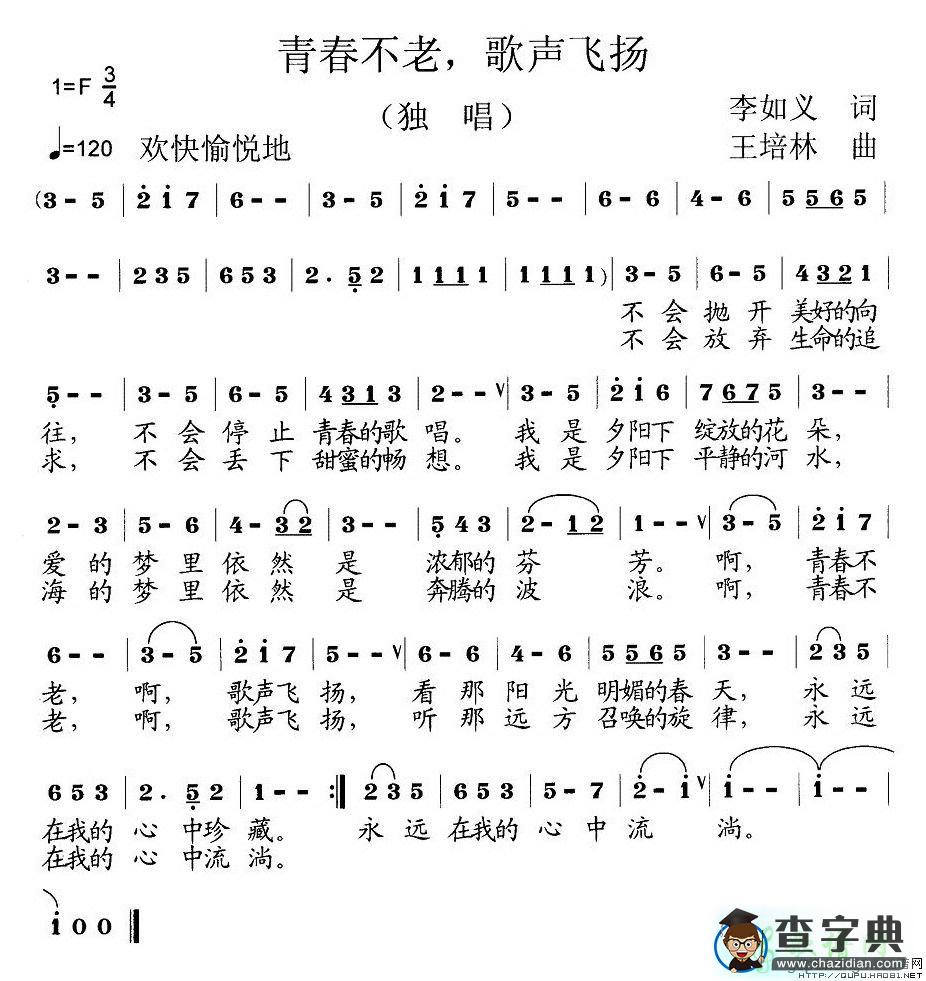 青春不老，歌声飞扬
1=F 3/4
（独 唱）
李如义 词
♩=120 欢快愉悦地
王培林 曲
(3 - 5 | 2̇ 1̇ 7 | 6 - - | 3 - 5 | 2̇ 1̇ 7 | 5 - - | 6 - 6 | 4 - 6 | 5 5̲6̲ 5 |
3 - - | 2 3 5 | 6 5 3 | 2. 5̣̲ 2 | 1 1̲1̲ 1 | 1 1̲1̲ 1) | 3 - 5 | 6 - 5 | 4 3̲2̲ 1 |
不 会 抛 开 美好的向
不 会 放 弃 生命的追
5̣ - - | 3 - 5 | 6 - 5 | 4 3̲1̲ 3 | 2 - - ∨ | 3 - 5 | 2̇ 1̇ 6 | 7 6̲7̲ 5 | 3 - - |
往， 不 会 停 止 青春的歌 唱。 我 是 夕阳下 绽放的花 朵，
求， 不 会 丢 下 甜蜜的畅 想。 我 是 夕阳下 平静的河 水，
2 - 3 | 5 - 6 | 4 - 3̲2̲ | 3 - - | 5̣ 4 3 | 2 - 1̲2̲ | 1 - - ∨ | 3 - 5 | 2̇ 1̇ 7 |
爱 的 梦 里 依 然 是 浓郁的 芬 芳。 啊， 青春不
海 的 梦 里 依 然 是 奔腾的 波 浪。 啊， 青春不
6 - - | 3 - 5 | 2̇ 1̇ 7 | 5 - - ∨ | 6 - 6 | 4 - 6 | 5 5̲6̲ 5 | 3 - - | 2 3 5 |
老， 啊， 歌声飞 扬， 看 那 阳 光 明媚的春 天， 永 远
老， 啊， 歌声飞 扬， 听 那 远 方 召唤的旋 律， 永 远
6 5 3 | 2. 5̣̲ 2 | 1 - - :‖ 2 3 5 | 6 5 3 | 5 - 7 | 2̇ - 1̇ ∨ | 1̇ - - | 1̇ - - |
在我的 心 中珍 藏。 永 远 在我的 心 中 流 淌。
在我的 心 中流 淌。
1̇ 0 0 ‖
查字典
www.chazidian.com
HTTP://QUPU.HAO81.NET